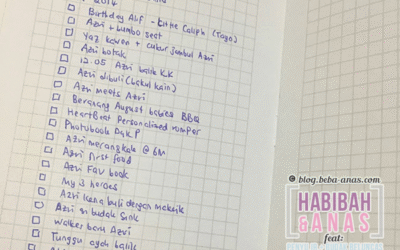 2014
Birthday Alif - Little Caliph (Tayo)
Azri + bumbo seat
Yaz kawen + cukur jambul Azri
Azri botak
12.05 Azri balik KK
Azri dibuli (bakul kain)
Azri meets Azri
Beraung August babies BBQ
HeartBeat Personalized romper
Photobook
Azri merangkak @ 6M
Azri first food
Azri Fav book
My 3 heroes
Azri kena buli dengan makcik
Azri n budak
Walker baru Azri
Tunggu ayah balik
@ blog.beba-anas.com
HABIBAH
&ANAS
feat: